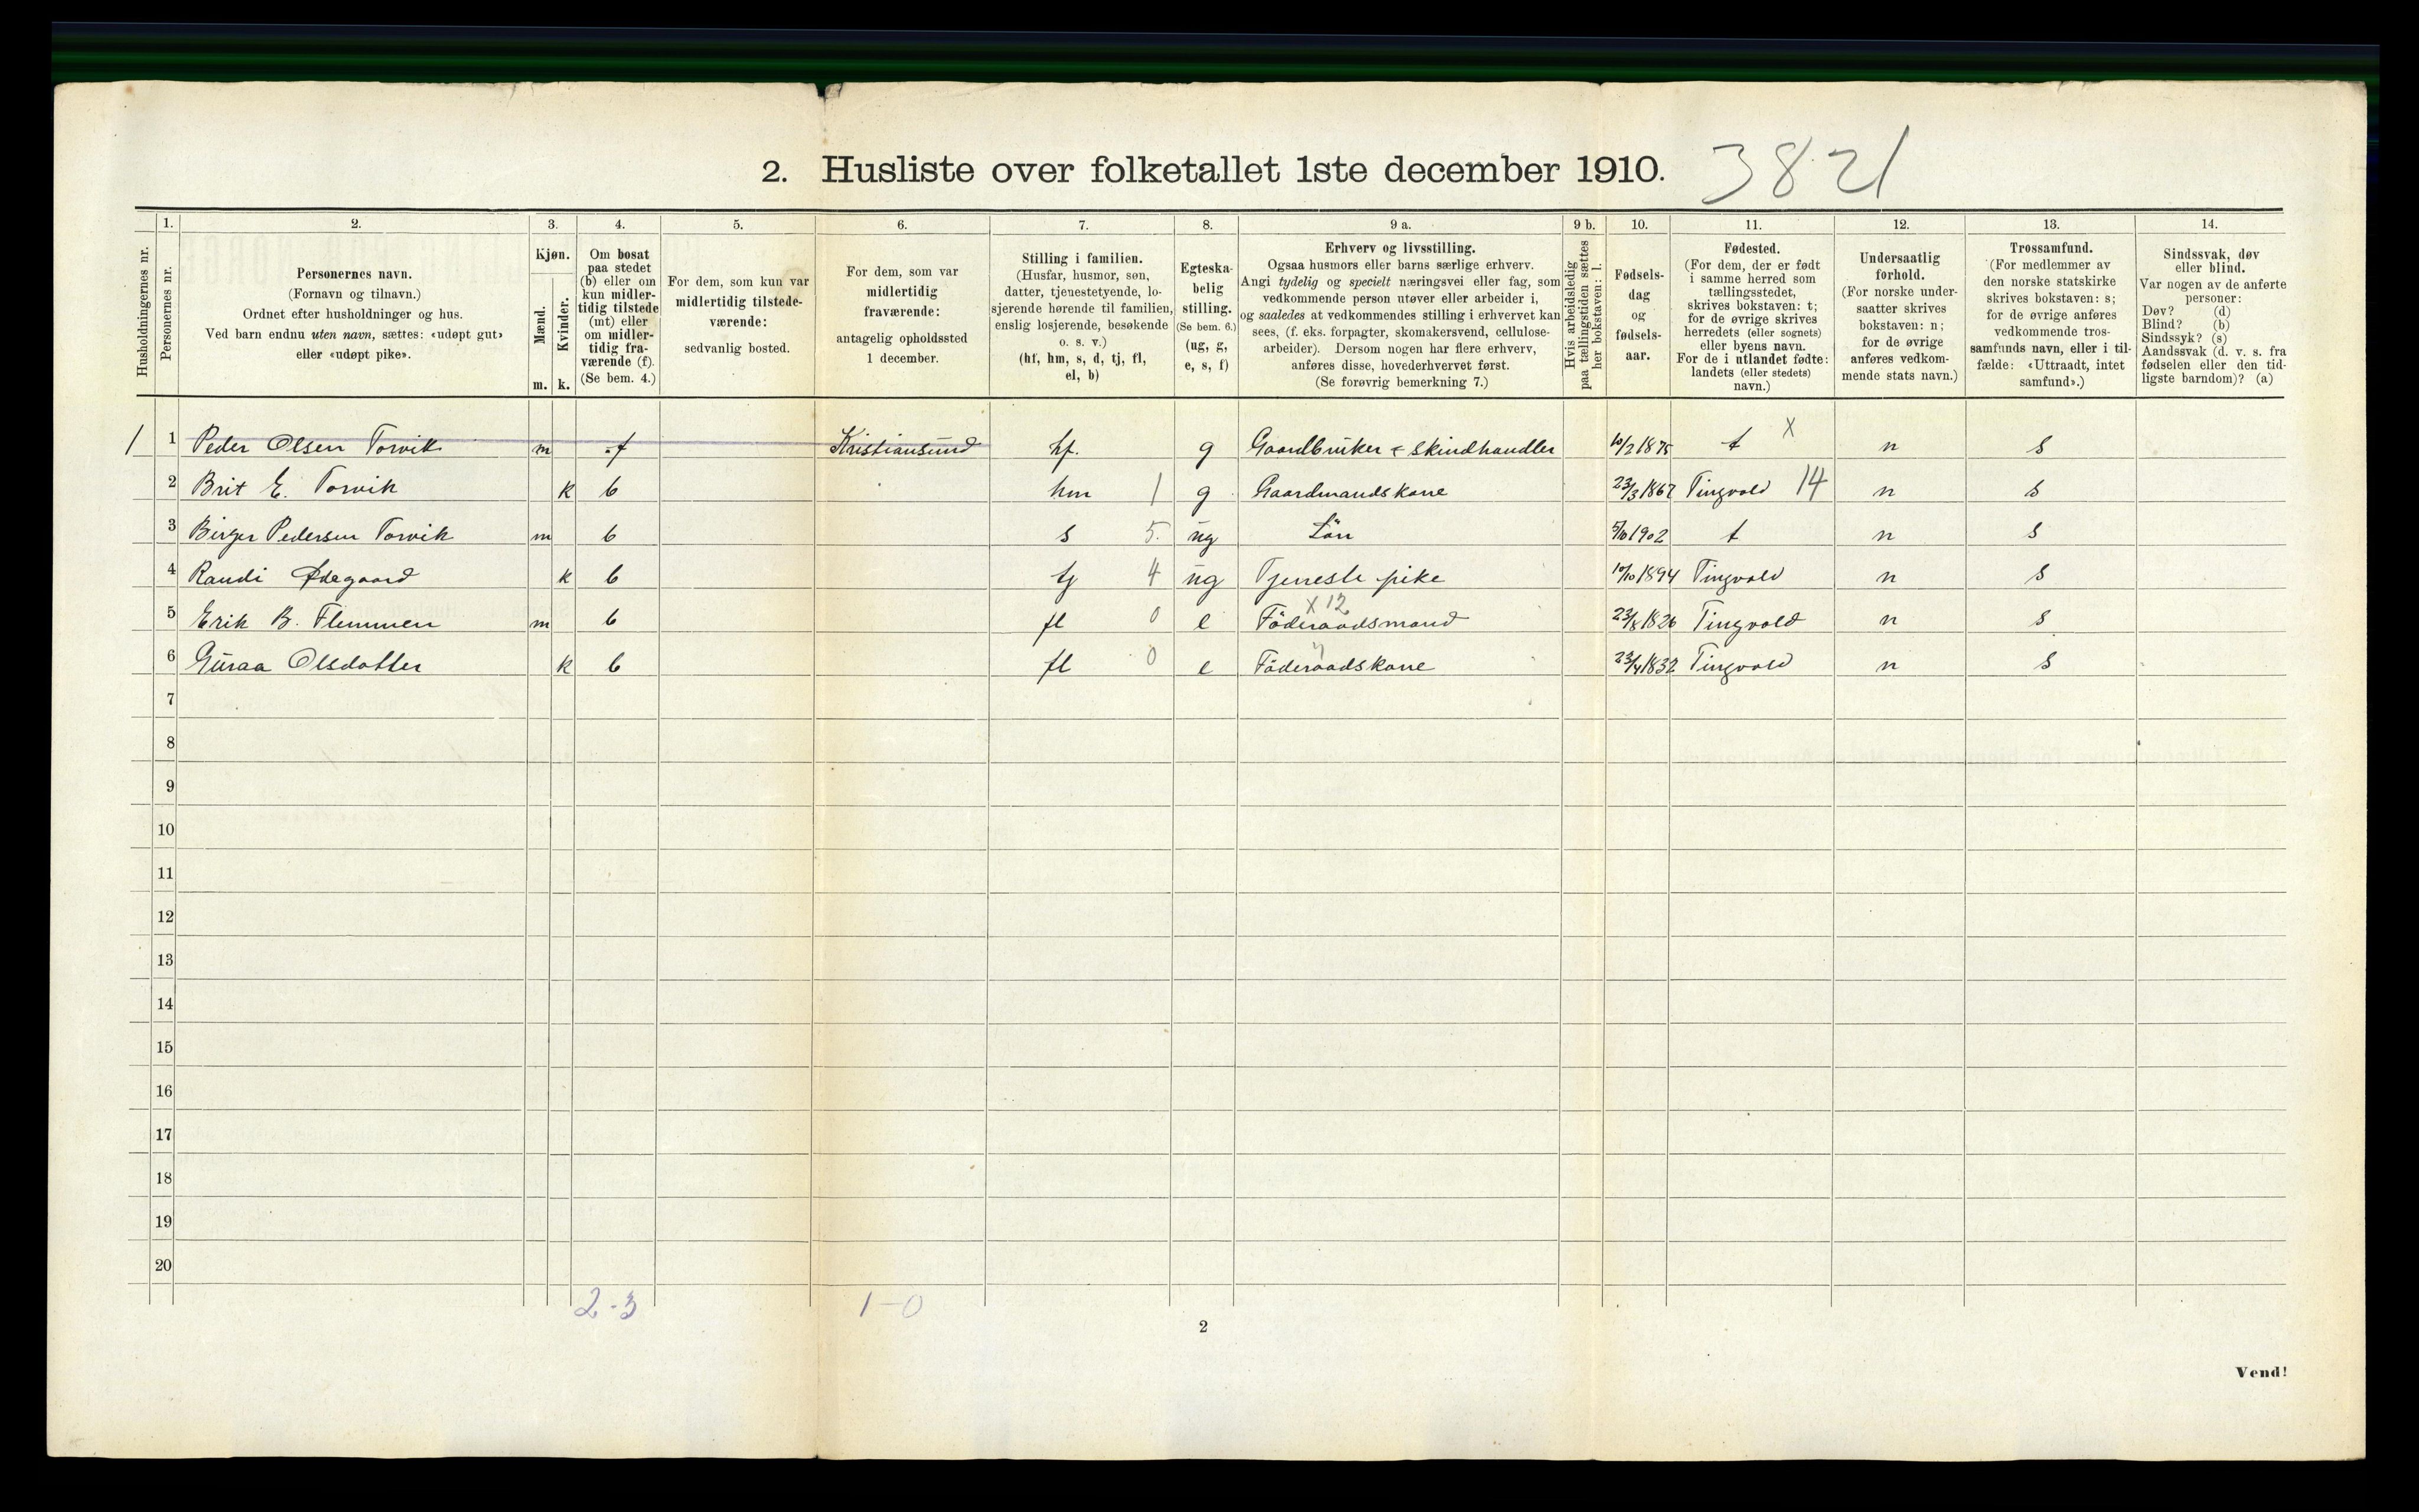 2. Husliste over folketallet 1ste december 1910. 3821
Husholdningernes nr.
1. Personernes nr.
2. Personernes navn.
(Fornavn og tilnavn.)
Ordnet efter husholdninger og hus.
Ved barn endnu uten navn, sættes: «udøpt gut»
eller «udøpt pike».
3. Kjøn.
Mænd. m.
Kvinder. k.
4. Om bosat
paa stedet
(b) eller om
kun midler-
tidig tilstede
(mt) eller
om midler-
tidig fra-
værende (f).
(Se bem. 4.)
5. For dem, som kun var
midlertidig tilstede-
værende:
sedvanlig bosted.
6. For dem, som var
midlertidig
fraværende:
antagelig opholdssted
1 december.
7. Stilling i familien.
(Husfar, husmor, søn,
datter, tjenestetyende, lo-
sjerende hørende til familien,
enslig losjerende, besøkende
o. s. v.)
(hf, hm, s, d, tj, fl,
el, b)
8. Egteska-
belig
stilling.
(Se bem. 6.)
(ug, g,
e, s, f)
9 a. Erhverv og livsstilling.
Ogsaa husmors eller barns særlige erhverv.
Angi tydelig og specielt næringsvei eller fag, som
vedkommende person utøver eller arbeider i,
og saaledes at vedkommendes stilling i erhvervet kan
sees, (f. eks. forpagter, skomakersvend, cellulose-
arbeider). Dersom nogen har flere erhverv,
anføres disse, hovederhvervet først.
(Se forøvrig bemerkning 7.)
9 b. Hvis arbeidsledig
paa tællingstiden sættes
her bokstaven: l.
10. Fødsels-
dag
og
fødsels-
aar.
11. Fødested.
(For dem, der er født
i samme herred som
tællingsstedet,
skrives bokstaven: t;
for de øvrige skrives
herredets (eller sognets)
eller byens navn.
For de i utlandet fødte:
landets (eller stedets)
navn.)
12. Undersaatlig
forhold.
(For norske under-
saatter skrives
bokstaven: n;
for de øvrige
anføres vedkom-
mende stats navn.)
13. Trossamfund.
(For medlemmer av
den norske statskirke
skrives bokstaven: s;
for de øvrige anføres
vedkommende tros-
samfunds navn, eller i til-
fælde: «Uttraadt, intet
samfund».)
14. Sindssvak, døv
eller blind.
Var nogen av de anførte
personer:
Døv? (d)
Blind? (b)
Sindssyk? (s)
Aandssvak (d. v. s. fra
fødselen eller den tid-
ligste barndom)? (a)
1 1 Peder Olsen Torvik m f Kristiansund hf. g Gaardbruker & skindhandler 10/2 1875 t X n s
2 Brit E. Torvik k b hm 1 g Gaardmandskone 23/3 1867 Tingvold 14 n s
3 Birger Pedersen Torvik m b s 5. ug Sön 5/10 1902 t n s
4 Randi Ødegaard k b tj 4 ug Tjeneste pike 10/10 1894 Tingvold n s
X 12
5 Erik B. Flemmen m b fl 0 e Föderaadsmand 23/8 1826 Tingvold n s
6 Guraa Olsdatter k b fl 0 e Föderaadskone 23/4 1832 Tingvold n s
7
8
9
10
11
12
13
14
15
16
17
18
19
20
2-3 1-0
2
Vend!